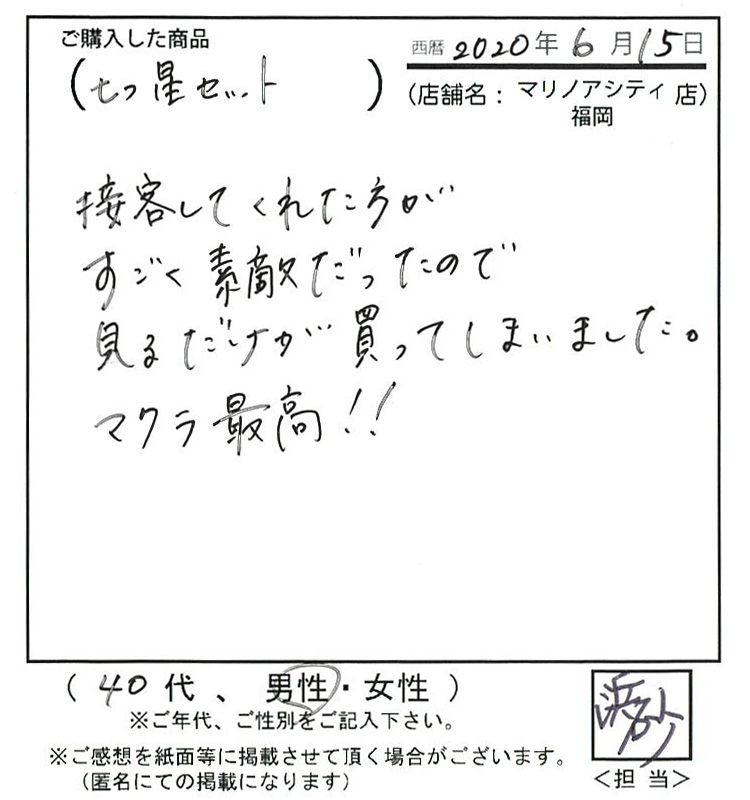 ご購入した商品
(七つ星セット)
西暦 2020年6月15日
(店舗名： マリノアシティ 店)
福岡
接客してくれた方が
すごく素敵だったので
見るだけが買ってしまいました。
マクラ最高!!
(40代、男性・女性)
※ご年代、ご性別をご記入下さい。
※ご感想を紙面等に掲載させて頂く場合がございます。
(匿名にての掲載になります)
＜担 当＞